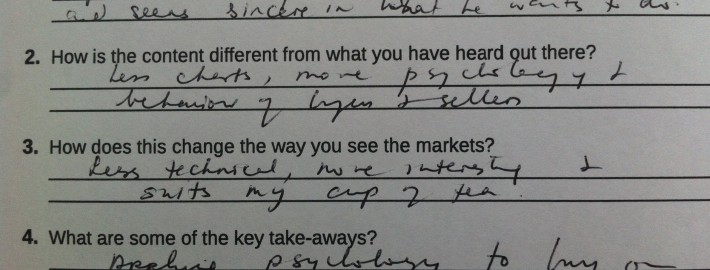 and seems sincere in what he wants to do.
2. How is the content different from what you have heard out there?
Less charts, more psychology &
behaviour of buyers & sellers
3. How does this change the way you see the markets?
Less technical, more interesting &
suits my cup of tea.
4. What are some of the key take-aways?
Applying psychology to buy or